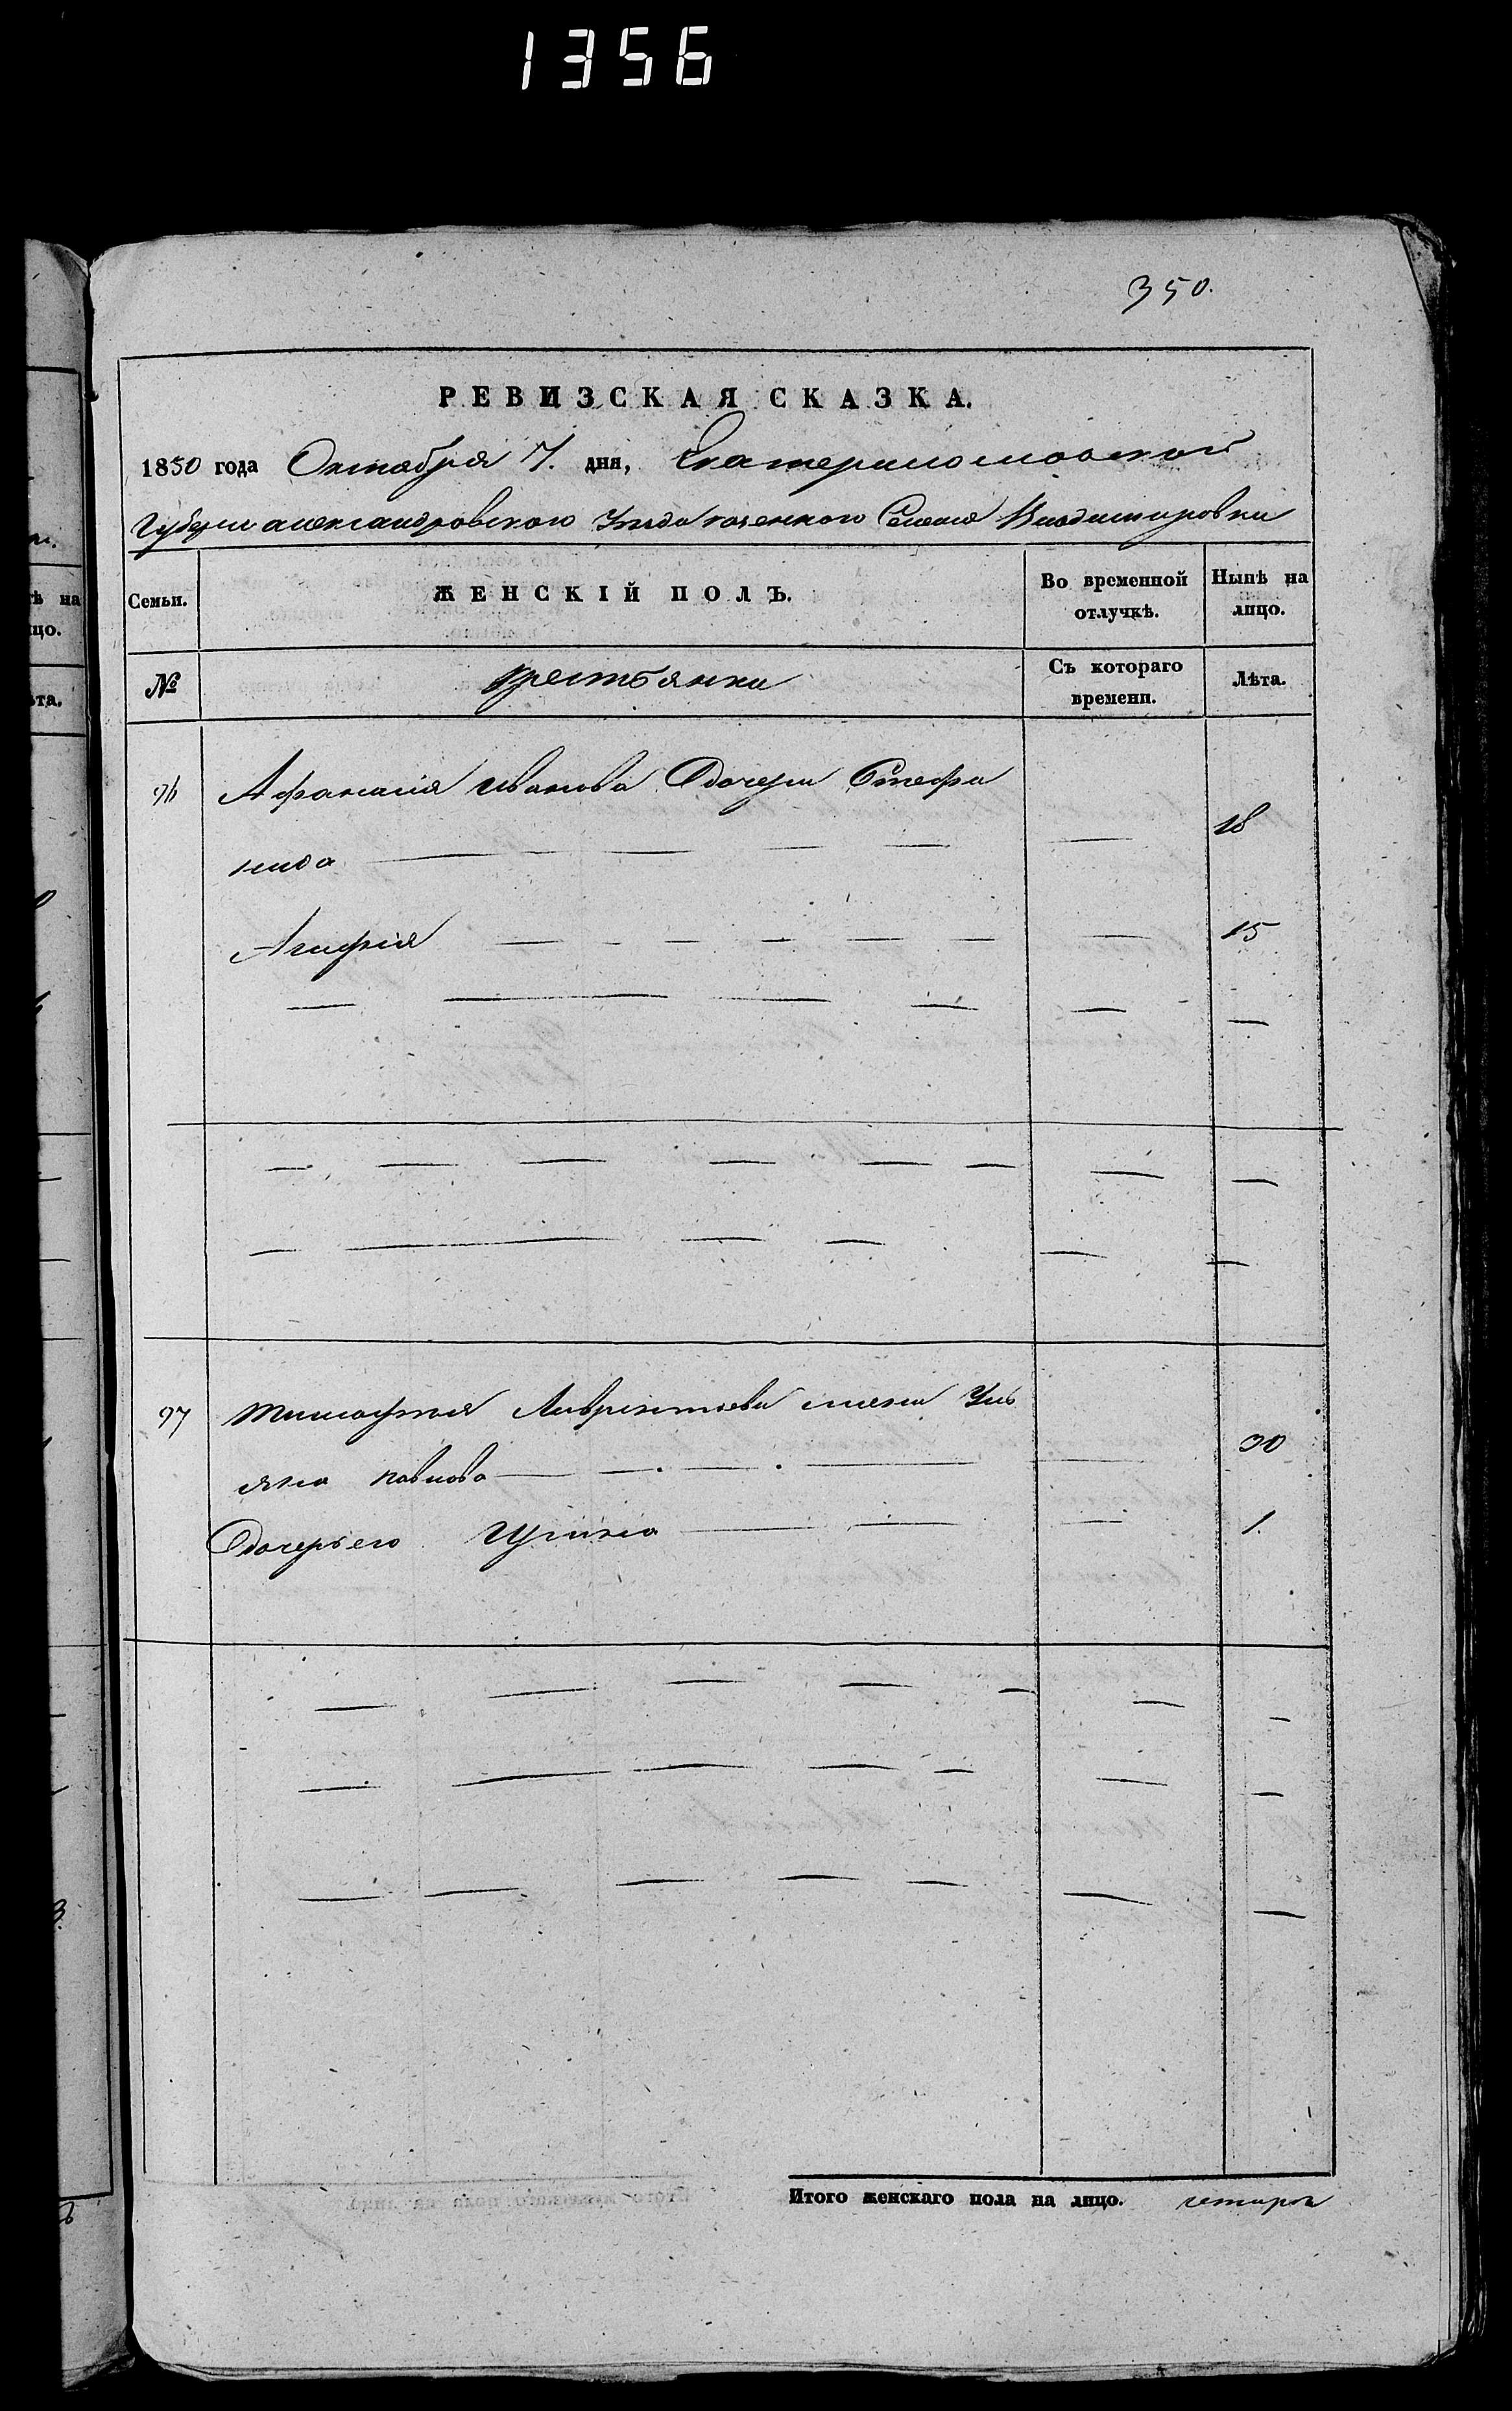 1356
350.
РЕВИЗСКАЯ СКАЗКА.
1850 года Октября 7. дня, Екатеринославской
Губернии александровского Уезда казенного Селения Владимировки
Семьи.
ЖЕНСКІЙ ПОЛЪ.
Во временной отлучкѣ.
Нынѣ на лицо.
№
крестьянки
Съ котораго времени.
Лѣта.
96 Афанасія иванова Дочери Стефа
нида 18
Агафія 15
97 тимофея Лаврентьева жена Уль
яна павлова 30
Дочерь его 1.
Итого женскаго пола на лицо. четыре